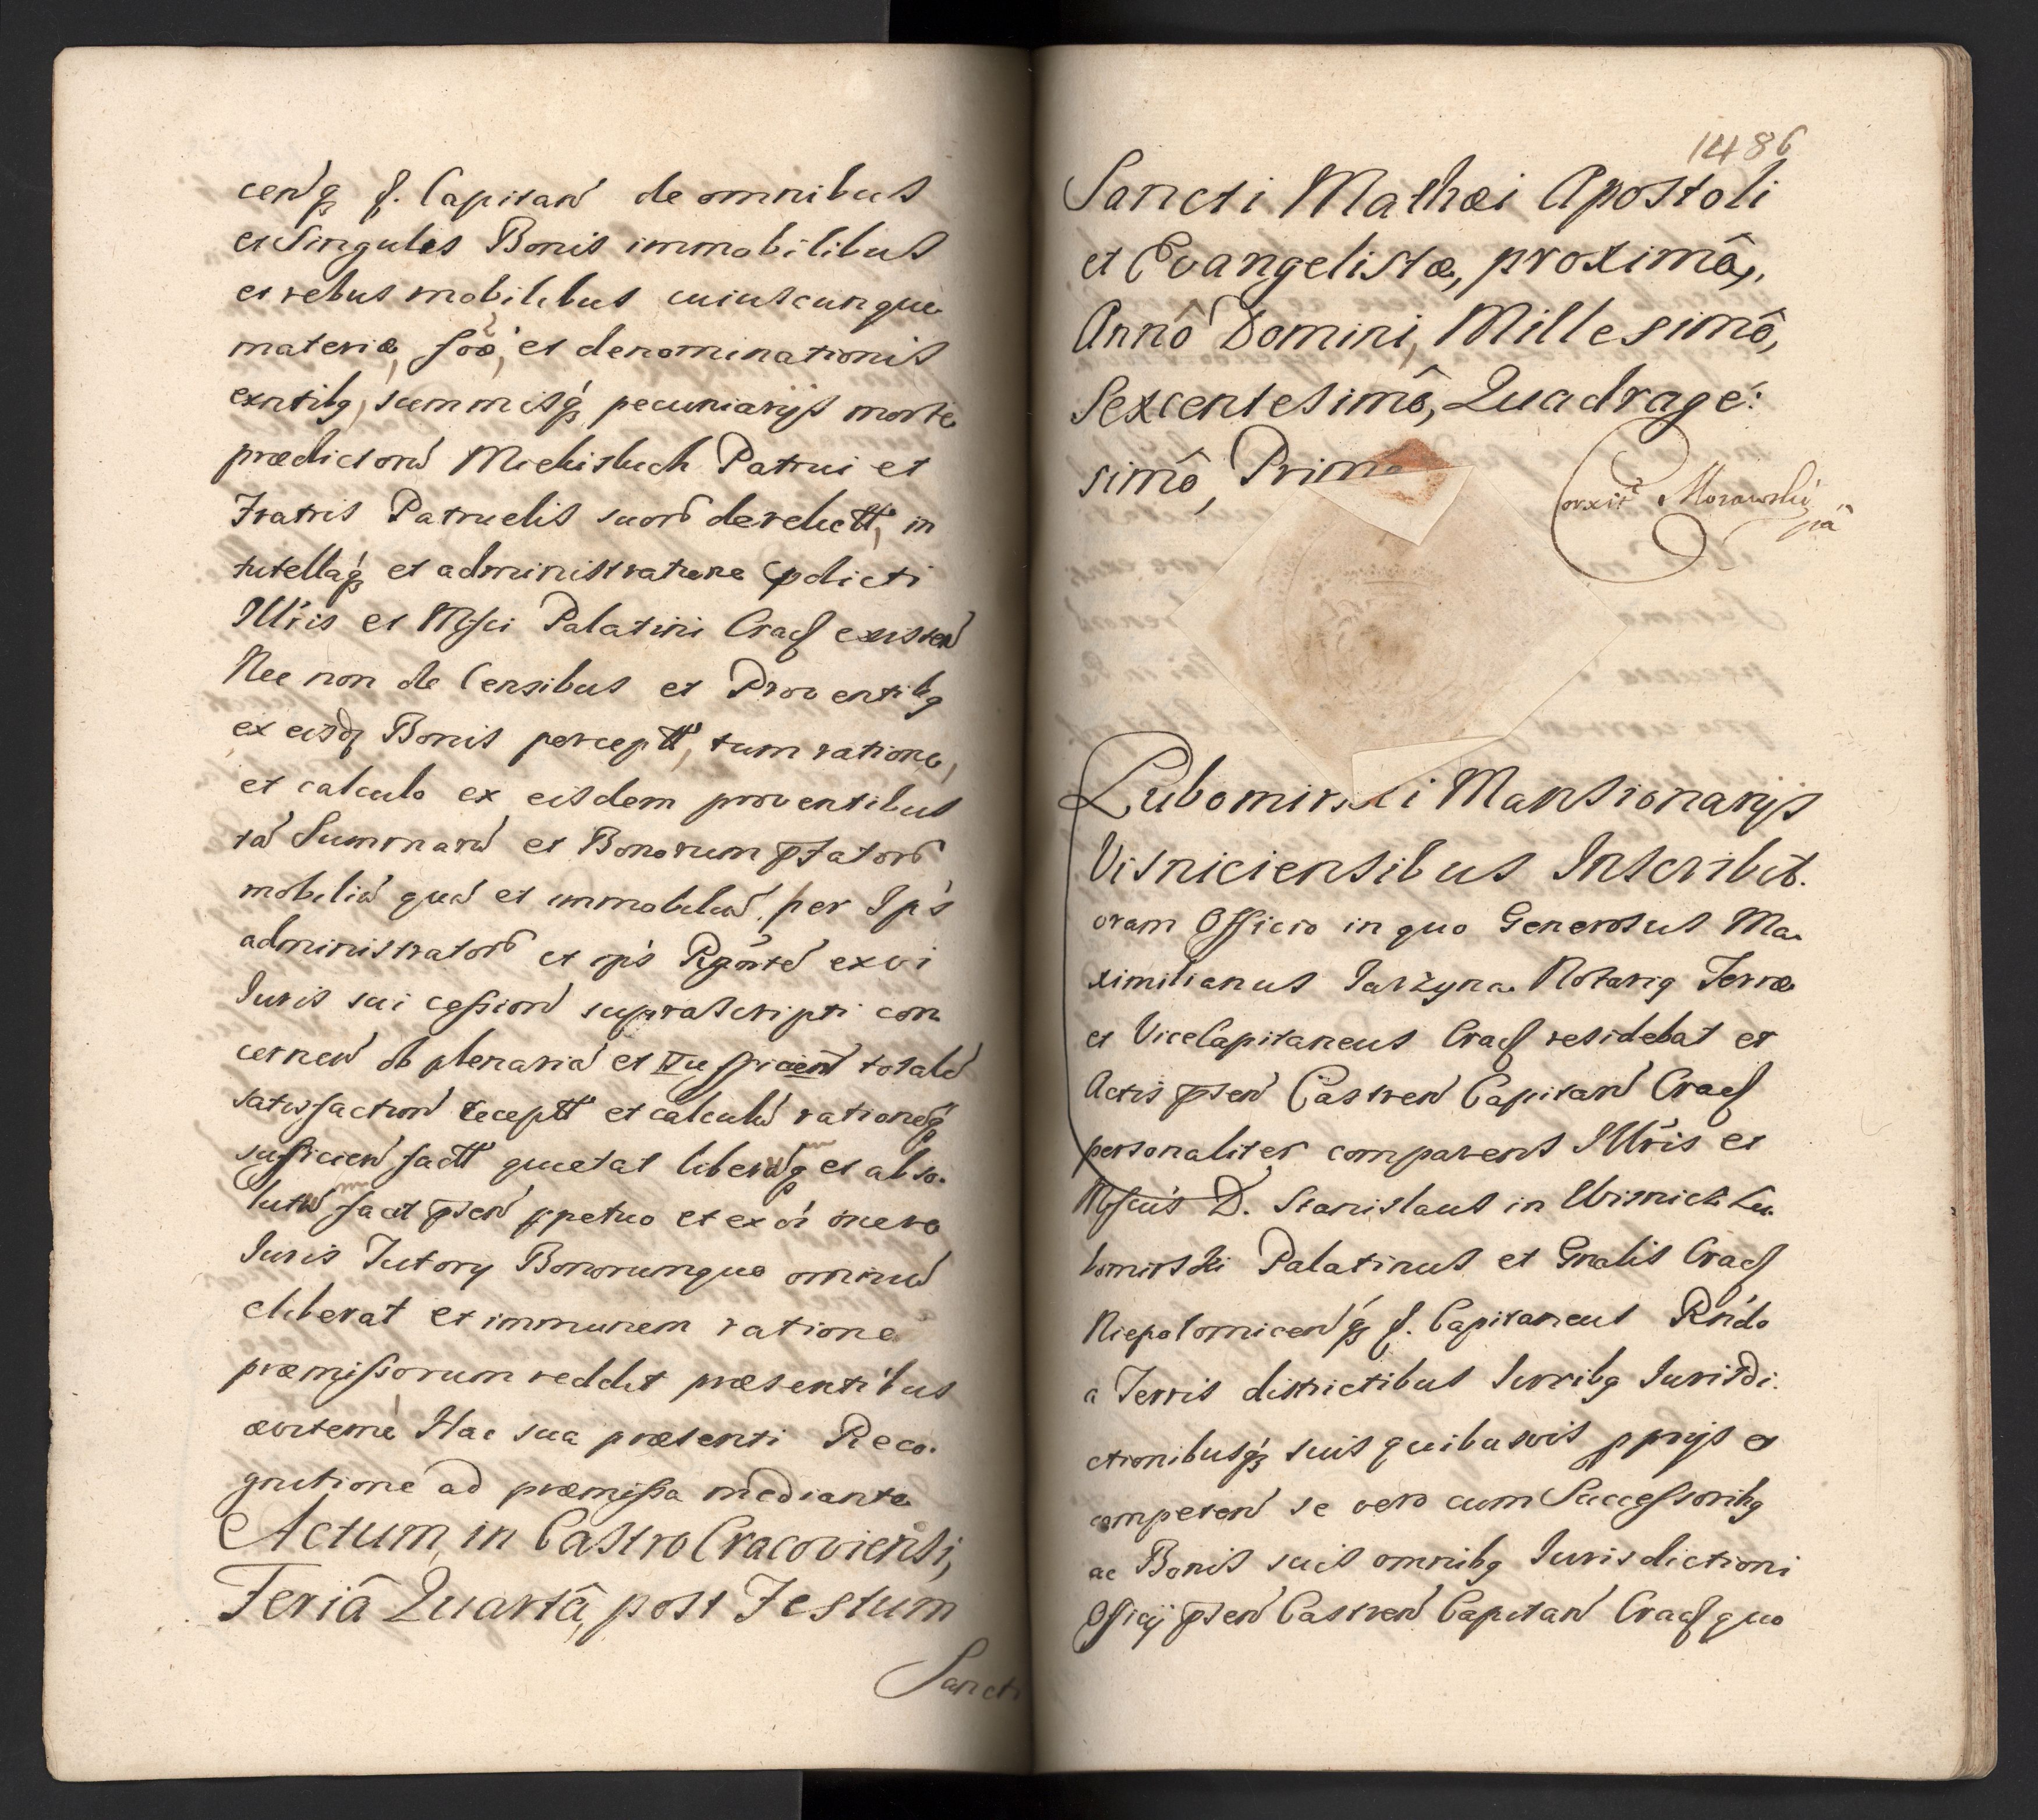 cenq̃ f. Capitan̄ de omnibus
et Singulis Bonis immobilibus
et rebus mobilibus cuiuscunque
materiæ, et denominationis
exntibq, summisq́ pecuniarijs morte
prædictorū Michisluch Patrui et
Fratris Patruelis suorū derelictt, in
tutellaq́ et administratione pdicti
Illr̄is et Mgfici Palatini Cracf existen̄
Nec non de Censibus et Proventibq
ex eisdq Bonis perceptt, tum ratione,
et calculo ex eisdem proventibus
tā Summarū et Bonorum p̄fatorū
mobiliū quā et immobiliū per Ips
administratorū et ips exvi
Iuris sui cession̄ suprascripti con
cernen̄ ob plenariā et sufficien̄ totalē
satisfaction̄ receptt et calculū rationesq́
sufficien̄ factt quietat liberūq et abso.
lutū facit p̄sen̄ ppetuo et ex oī onere
Iuris Tutorij Bonorumque omniū
eliberat et immunem ratione
præmissorum reddit præsentibus
æviterne Hac sua præsenti Reco.
gnitione ad præmissa mediante
Actum in Castro Cracoviensi,
Feriâ Quartâ, post Festum
Sancti
1486
Sancti Mathæi Apostoli
et Evangelistæ, proximâ,
Annô Domini, Millesimô,
Sexcentesimô, Quadrage:
simô, Primo
Corxit Morawski
Lubomirski Mansionarijs
Visniciensibus Inscribit.
oram Officio in quo Generosus Ma
ximilianus Iarzyna Notariq Terræ
et ViceCapitaneus Cracf residebat et
Actis p̄sen̄ Castren̄ Capitan̄ Cracf
personaliter comparens Illr̄is et
Mgficus D. Stanislaus in Wisnicz Lu
bomirski Palatinus et Gnalis Cracf
Niepolomicen̄q́ f. Capitaneus Rndo
a Terris districtibus Iurribq Iurisdi.
ctionibusq́ suis quibusvis pprijs et
competen̄ se vero cum Successoribq
ac Bonis suis omnibq Iurisdictioni
Officij p̄sen̄ Castren̄ Capitan̄ Cracf quo